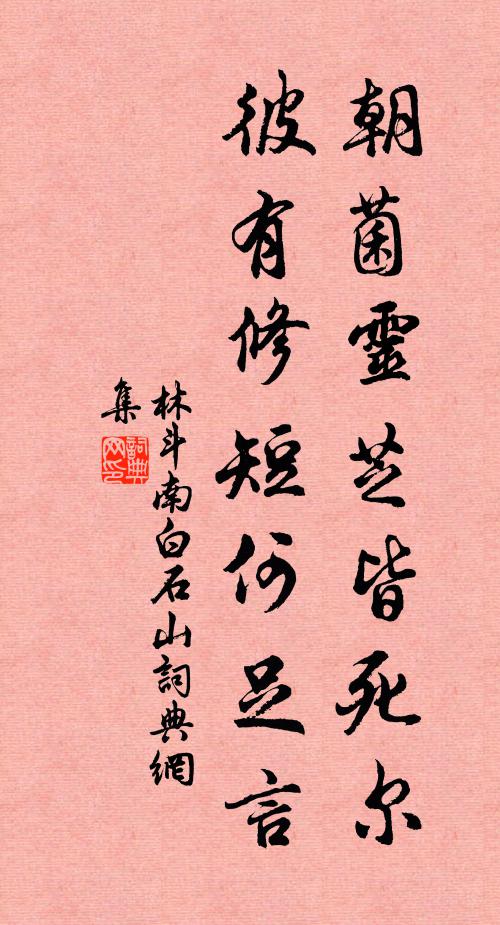 朝菌靈芝皆死尔
彼有修短何足言
林斗南白石山詞典網
集
詞典
网印